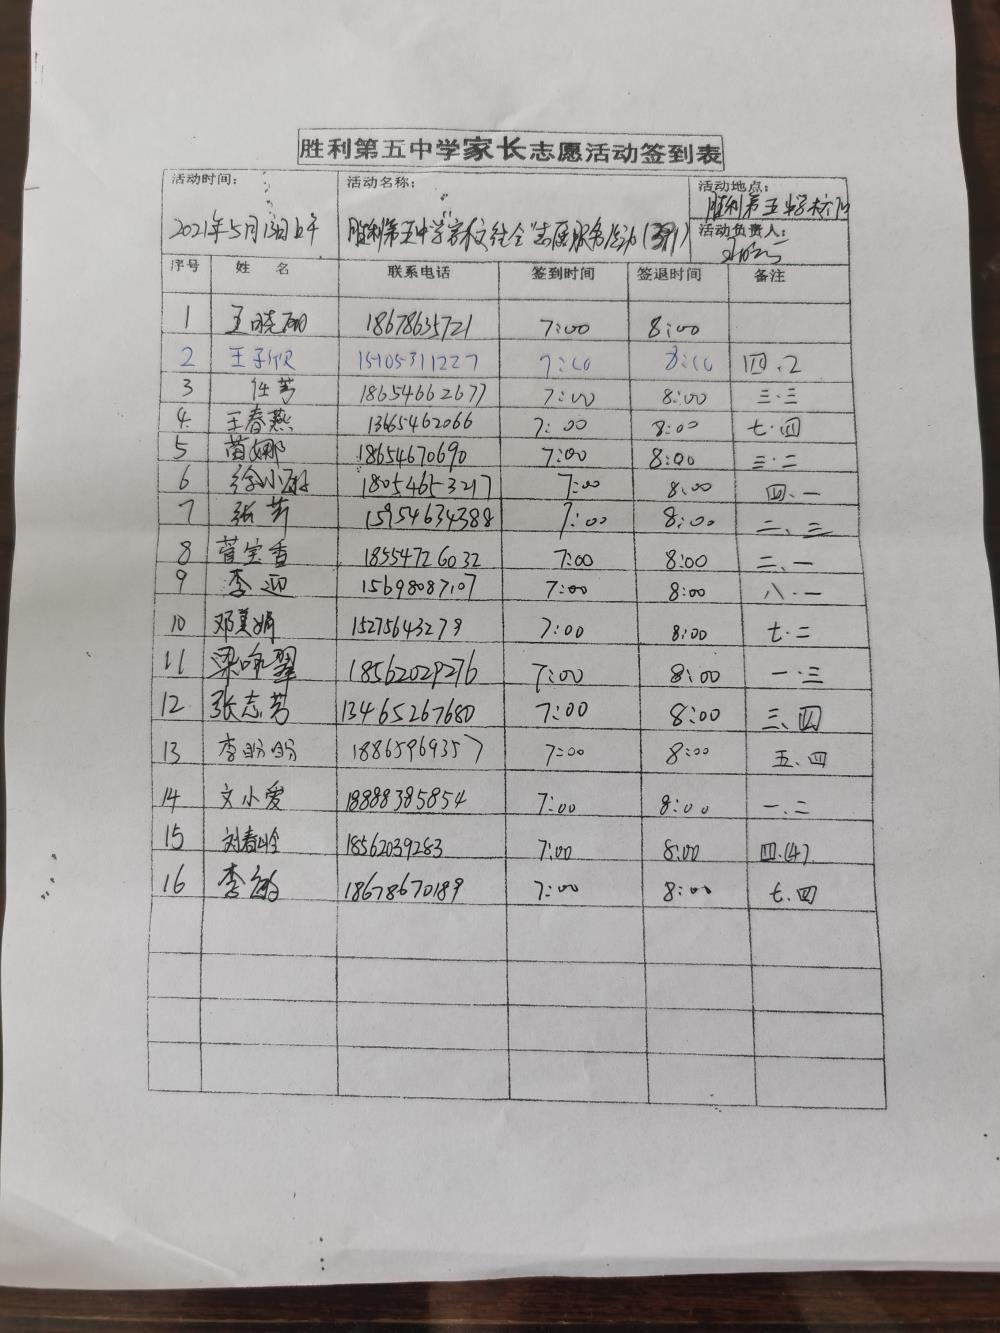 胜利第五中学家长志愿活动签到表
活动时间: 活动名称: 活动地点:
2021年5月13日上午 胜利第五中学家校社会志愿服务活动 胜利第五中学校门
活动负责人:
序号 姓名 联系电话 签到时间 签退时间 备注
1 王晓丽 18678635721 7:00 8:00
2 王子欣 15105311227 7:00 8:00 四.2
3 任芳 18654662677 7:00 8:00 三.三
4 王春燕 13665462066 7:00 8:00 七.四
5 苗娜 18654670690 7:00 8:00 三.二
6 徐小 18054653217 7:00 8:00 四.一
7 张芳 15954634388 7:00 8:00 二、三
8 菅宝香 18554726032 7:00 8:00 二、一
9 李迎 15698087107 7:00 8:00 八.一
10 邓莫娟 15275643279 7:00 8:00 七.二
11 梁咏翠 18562029276 7:00 8:00 一.三
12 张志芳 13465267680 7:00 8:00 三、四
13 李盼盼 18865969357 7:00 8:00 五、四
14 文小爱 18888385854 7:00 8:00 一.二
15 刘春岭 18562039283 7:00 8:00 四.(4)
16 李敏 18678670189 7:00 8:00 七.四